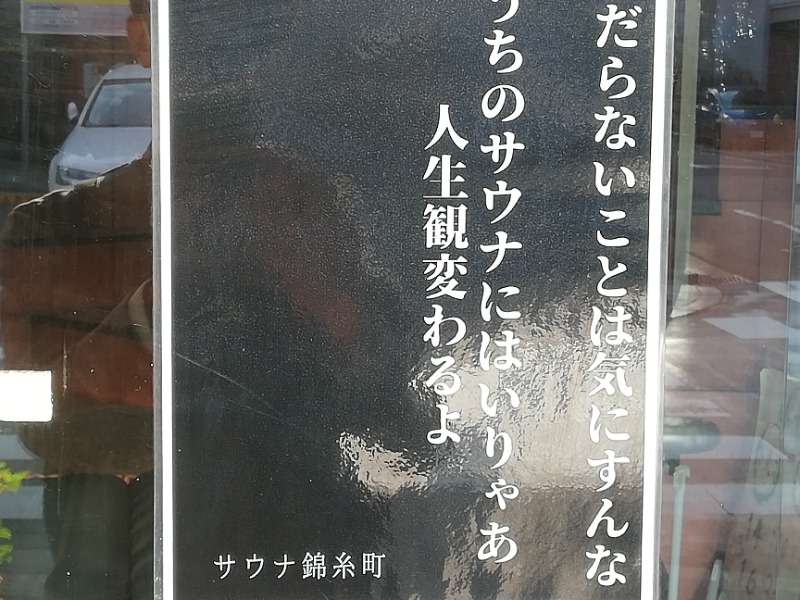 だらないことは気にすんな
うちのサウナにはいりゃあ
人生観変わるよ
サウナ錦糸町